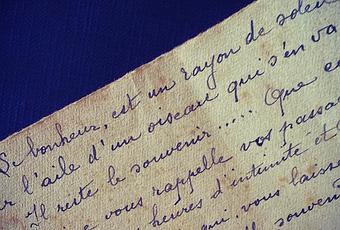 Le bonheur, est un rayon de soleil
r l'aile d'un oiseau qui s'en va
Il reste le souvenir..... Que ce
vous rappelle vos passa
heures d'intimité et
qui, vous laisse
souven